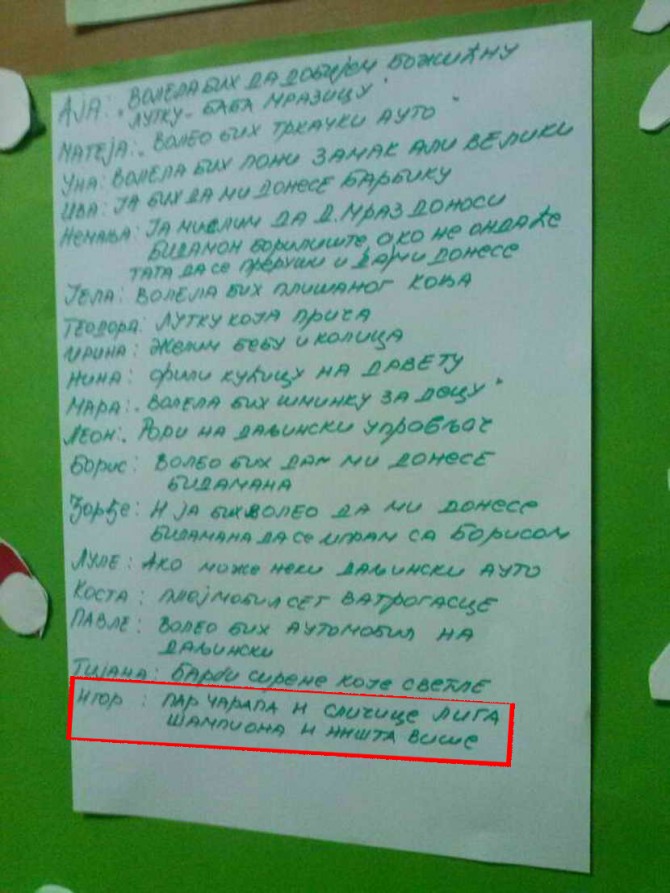 АЈА: „ВОЛЕЛА БИХ ДА ДОБИЈЕМ БОЖИЋНУ
ЛУТКУ - БАБА МРАЗИЦУ"
МАТЕЈА: „ВОЛЕО БИХ ТРКАЧКИ АУТО"
УНА: ВОЛЕЛА БИХ ПОНИ ЗАМАК АЛИ ВЕЛИКИ
ИВА: ЈА БИХ ДА МИ ДОНЕСЕ БАРБИКУ
НЕМАЊА: ЈА МИСЛИМ ДА Д. МРАЗ ДОНОСИ
БИДАМОН БОРИЛИШТЕ, АКО НЕ ОНДА ЋЕ
ТАТА ДА СЕ ПРЕРУШИ И ДА МИ ДОНЕСЕ
ЈЕЛА: ВОЛЕЛА БИХ ПЛИШАНОГ КОЊА
ТЕОДОРА: ЛУТКУ КОЈА ПРИЧА
ИРИНА: ЖЕЛИМ БЕБУ И КОЛИЦА
НИНА: ФИЛИ КУЋИЦУ НА ДРВЕТУ
МАРА: „ВОЛЕЛА БИХ ШМИНКУ ЗА ДЕЦУ"
ЛЕОН: „РОРИ НА ДАЉИНСКИ УПРАВЉАЧ
БОРИС: ВОЛЕО БИХ ДА МИ ДОНЕСЕ
БИДАМАНА
ЂОРЂЕ: И ЈА БИХ ВОЛЕО ДА МИ ДОНЕСЕ
БИДАМАНА ДА СЕ ИГРАМ СА БОРИСОМ
ЛУЛЕ: АКО МОЖЕ НЕКИ ДАЉИНСКИ АУТО
КОСТА: ПЛЕЈМОБИЛ СЕТ ВАТРОГАСЦЕ
ПАВЛЕ: ВОЛЕО БИХ АУТОМОБИЛ НА
ДАЉИНСКИ
ТИЈАНА: БАРБИ СИРЕНЕ КОЈЕ СВЕТЛЕ
ИГОР: ПАР ЧАРАПА И СЛИЧИЦЕ ЛИГА
ШАМПИОНА И НИШТА ВИШЕ